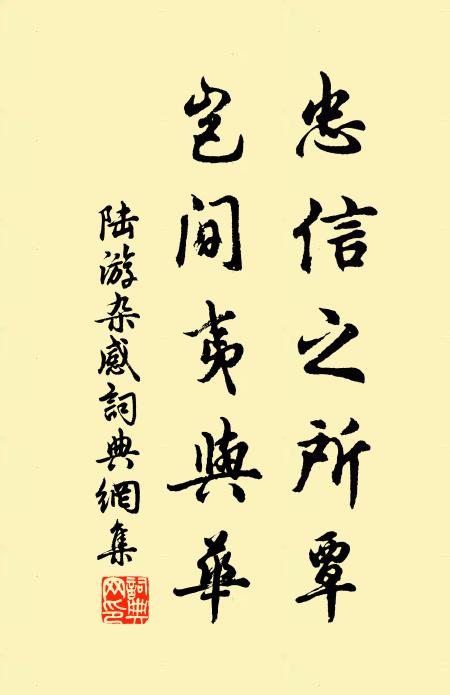 忠信之所覃
岂间夷與華
陆游杂感詞典網集
詞典网印